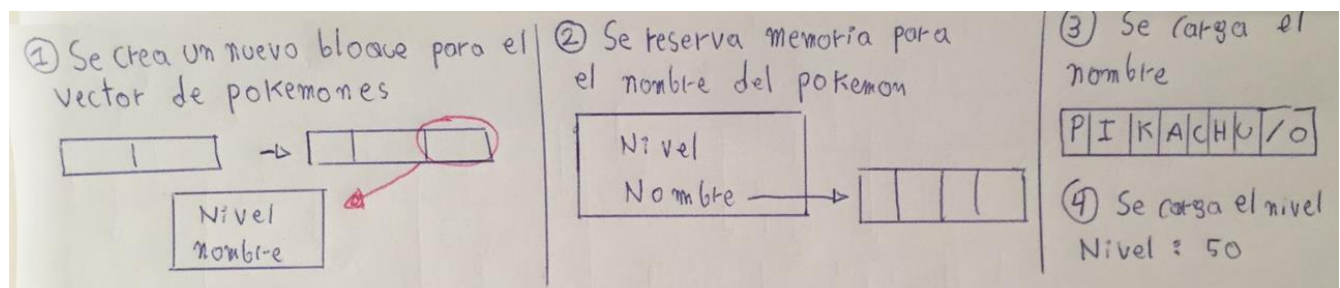 ① Se crea un nuevo bloque para el
vector de pokemones
Nivel
nombre
② Se reserva memoria para
el nombre del pokemon
Nivel
Nombre
③ Se carga el
nombre
P I K A C H U /0
④ Se carga el nivel
Nivel : 50